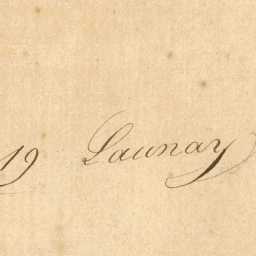 19 Launay